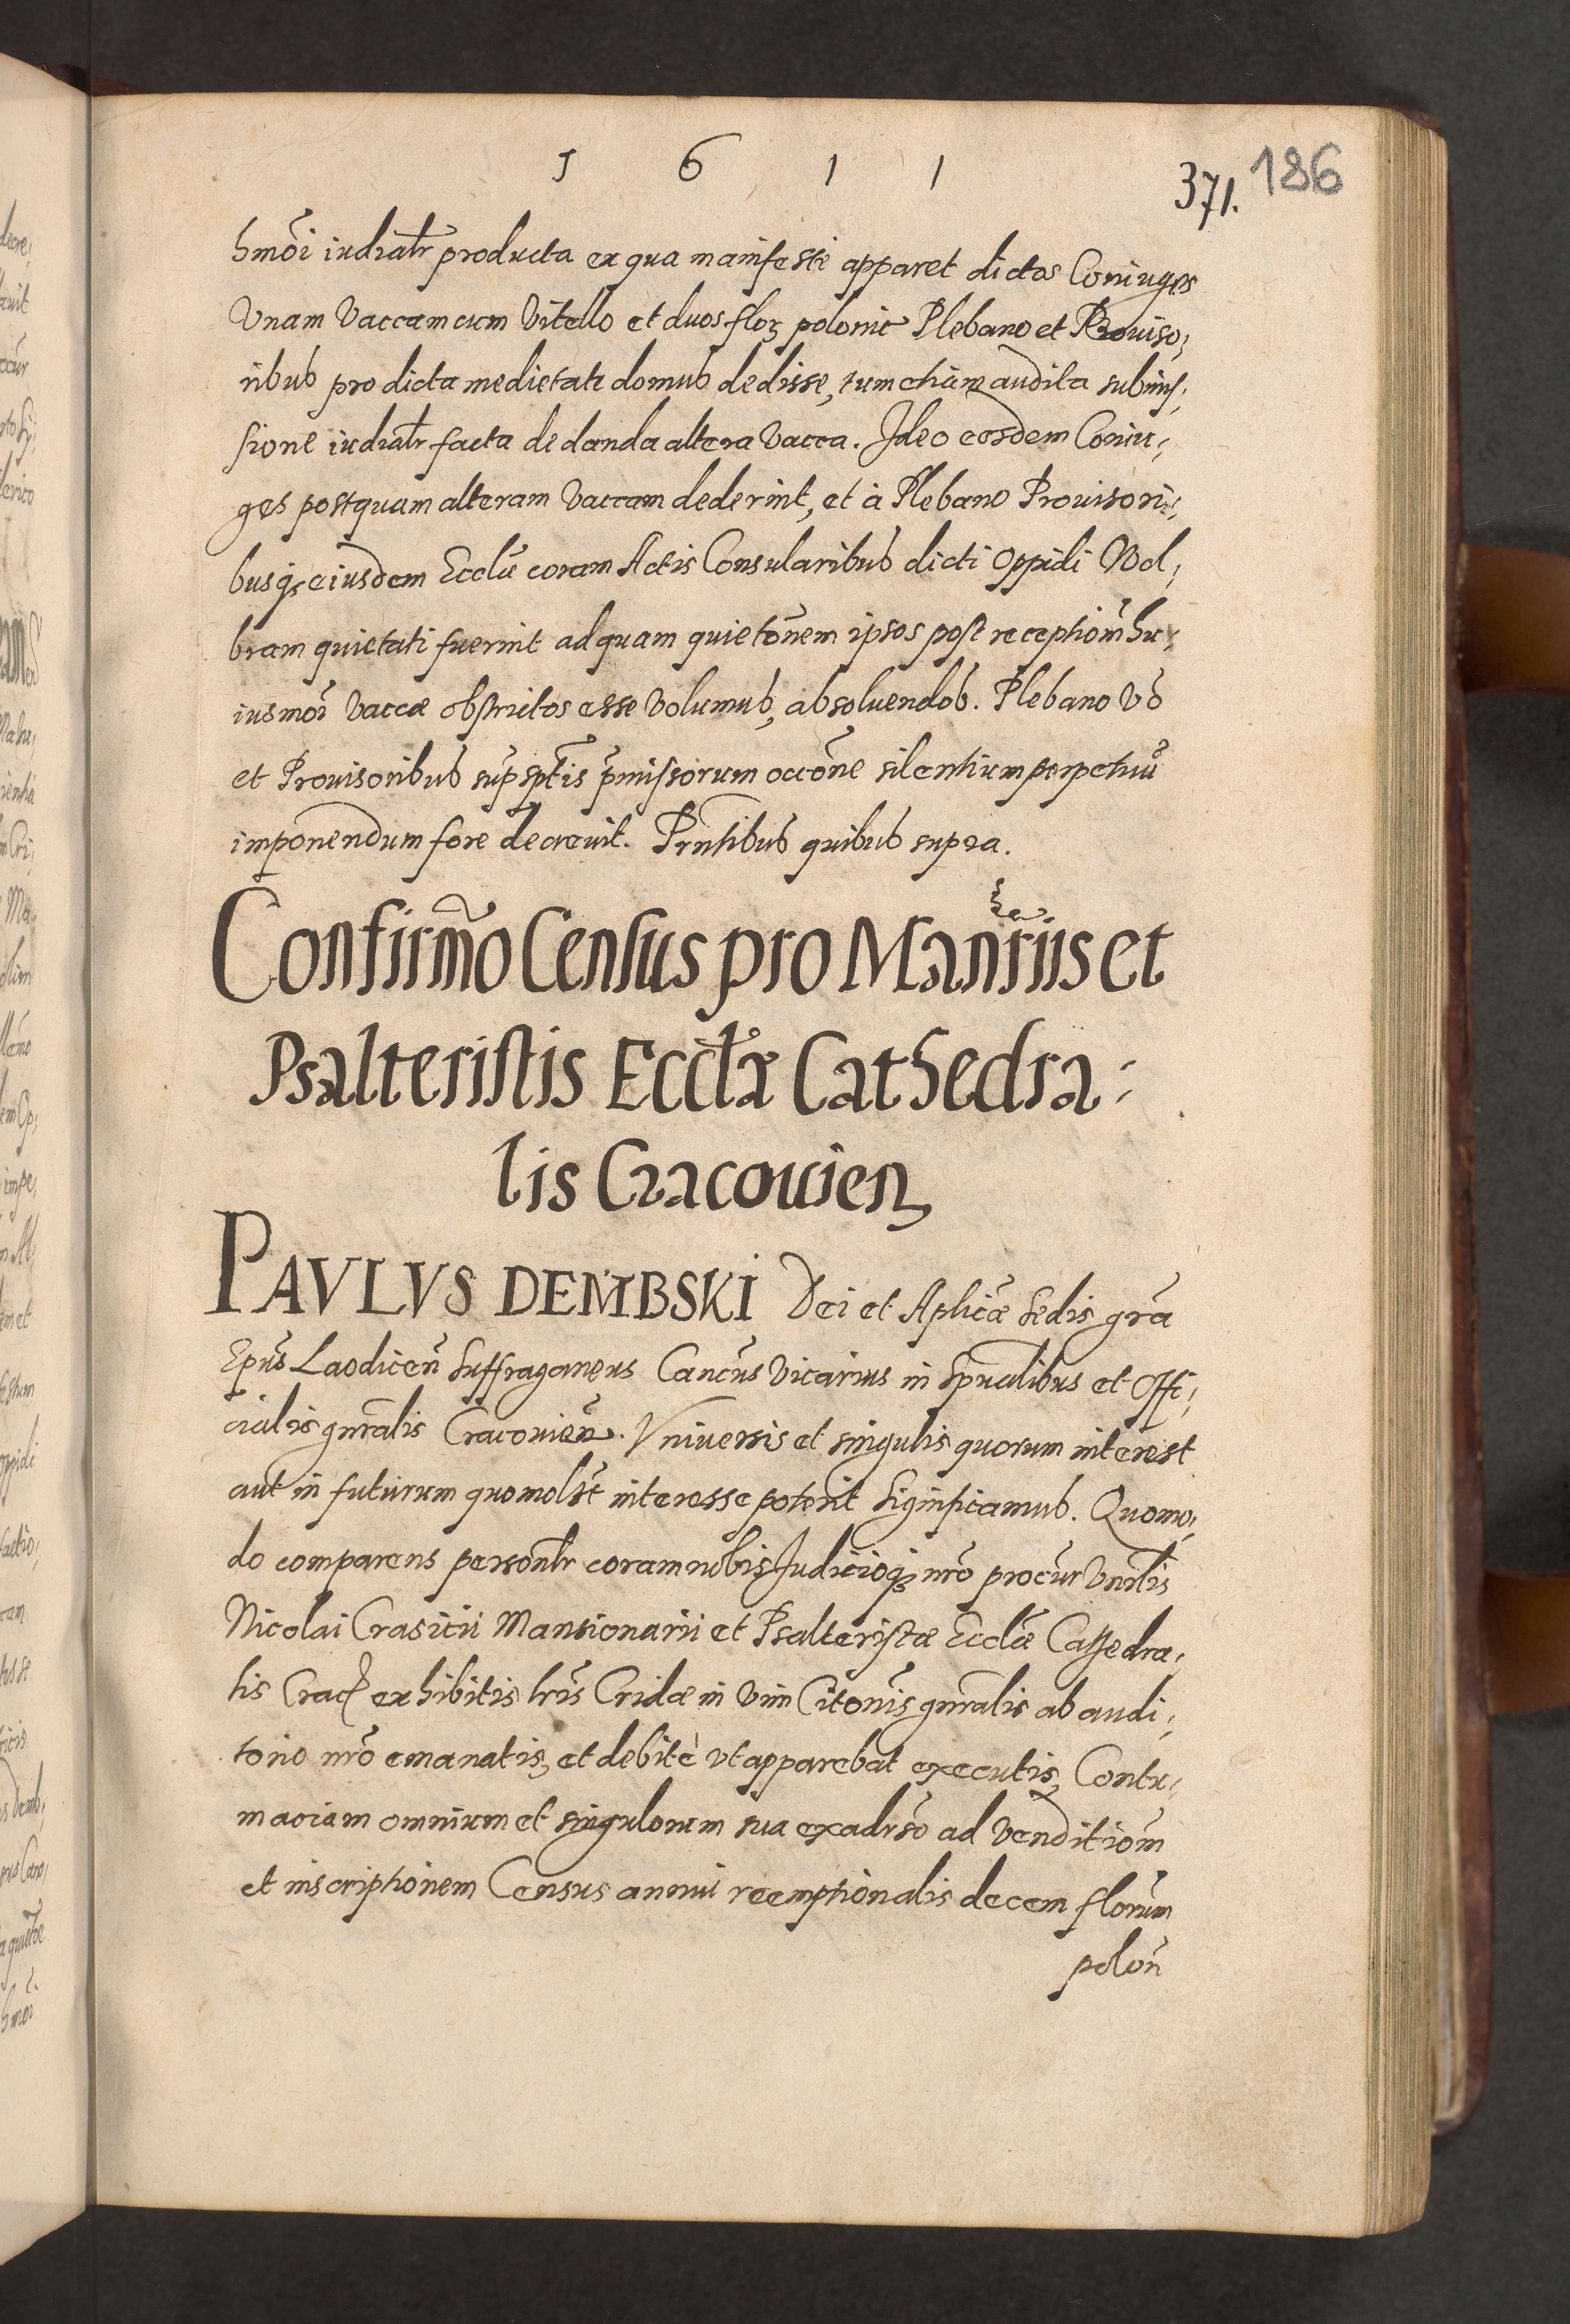 1 6 1 1
371. 186
hmõi iudialr producta ex qua manifeste apparet dictos Coniuges
Vnam Vaccam cum Vitello et duos flor polonic Plebano et Prouiso,
ribus pro dicta medietate domus dedisse, tum etiam audita submis,
sione iudialr facta de danda altera Vacca. Ideo eosdem Coniu,
ges postquam alteram Vaccam dederint, et à Plebano Prouisori,
busq; eiusdem Ecclæ coram Actis Consularibus dicti Oppidi Wol,
bram quietati fuerint ad quam quietõnem ipsos post receptiom̃ hu,
iusmõi Vaccæ obstrictos esse Volumus, absoluendos. Plebano Võ
et Prouisoribus sup̃ sptis p̃missorum occõne silentium perpetuũ
imponendum fore decreuit. Prntibus quibus supra.
Confirm̃o Census pro Manriis et
Psalteristis Ecclæ Cathedra,
lis Cracouien
PAVLVS DEMBSKI Dei et Aplicæ Sedis grã
Ep̃us Laodiceñ Suffraganeus Canc̃us Vicarius in Spũalibus et Offi,
cialis gnr̃alis Cracouieñ. Vniuersis et singulis quorum interest
aut in futurum quomolbt interesse poterit Significamus. Quomo,
do comparens personlr coram nobis Iudicioq; nr̃o procũr Vnrlis
Nicolai Crasicii Mansionarii et Psalteristæ Ecclæ Cathedra,
lis Crac exhibitis lris Cridæ in Vim Citonis gnralis ab audi,
torio nr̃o emanatis, et debitè vt apparebat executis, Contu,
maciam omnium et singulorum sua ex aduerso ad Venditiom̃
et inscriptionem Census annui reemptionalis decem florum
poloñ